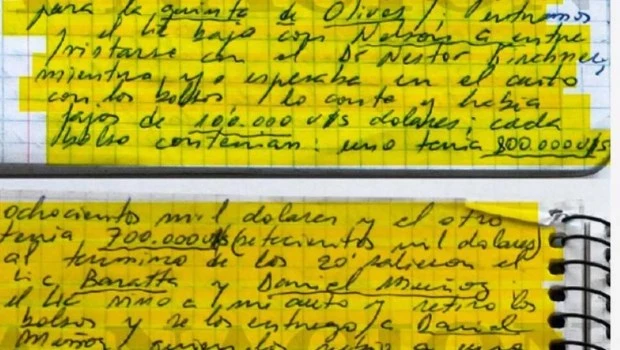 para la quinta de Olivos / entramos
el Lic bajo con Nelson, a entre
/vistarse con el Dr Nestor Kirchner,
mientras yo esperaba en el auto
con los bolsos / lo conte y habia
fajos de 100.000 u$s dolares; cada
bolso contenian: uno tenia 800.000u$s
ochocientos mil dolares y el otro
tenia 700.000u$s (setecientos mil dolares)
al termino de los 20' salieron el
Lic Baratta y Daniel Muñoz
el Lic vino a mi auto y retiro los
bolsos y se los entrego a Daniel
Muñoz / quien los